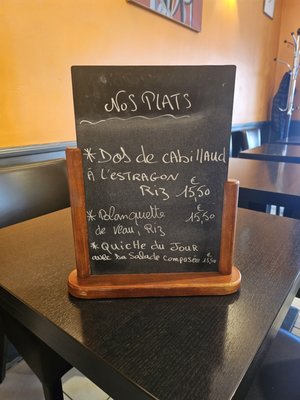 Nos PLATS
* Dos de cabillaud
à l'estragon
Riz 15,50 €
* Blanquette 15,50 €
de veau, Riz
* Quiche du Jour
avec sa salade composée 15,50 €